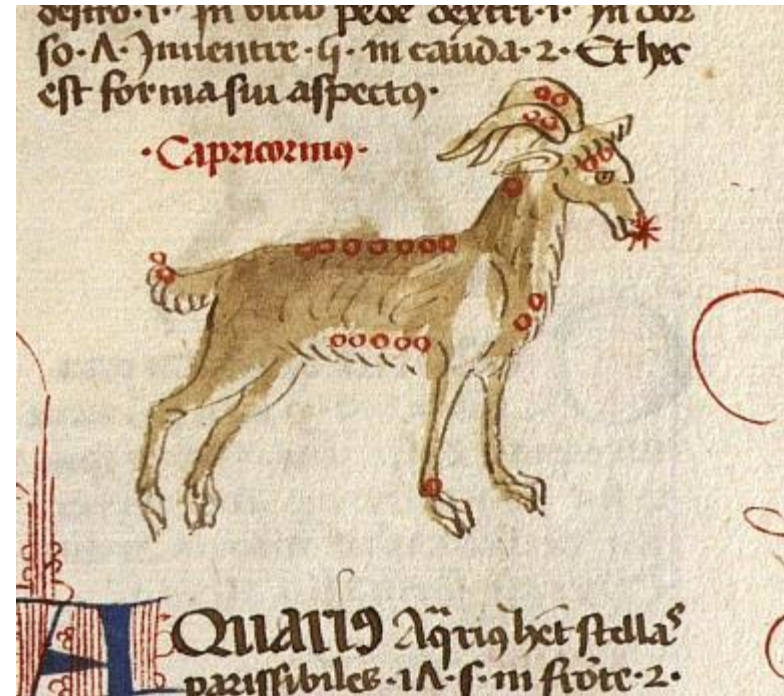 dextro · 1 · In uno pede dextri · 1 · In dor
so · Λ · In uentre · ꝗ · in cauda · 2 · Et hec
est forma sui aspectꝰ ·
· Capricornuꝰ ·
AQUARIꝰ Aq̄riꝰ het stellaˢ
parissibiles · 1Λ · s · in frōte · 2 ·